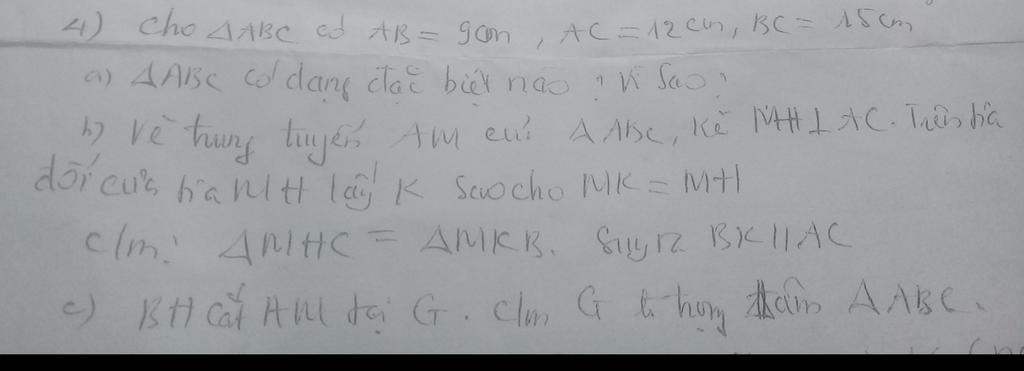 4) Cho ΔABC có AB = 9cm, AC = 12cm, BC = 15cm
a) ΔABC có dạng đặc biệt nào? Vì sao?
b) Vẽ trung tuyến AM của ΔABC, kẻ MH ⊥ AC. Trên tia
đối của tia MH lấy K sao cho MK = MH
c/m: ΔMHC = ΔMKB. Suy ra BK // AC
c) BH cắt AM tại G. c/m G là trọng tâm ΔABC.